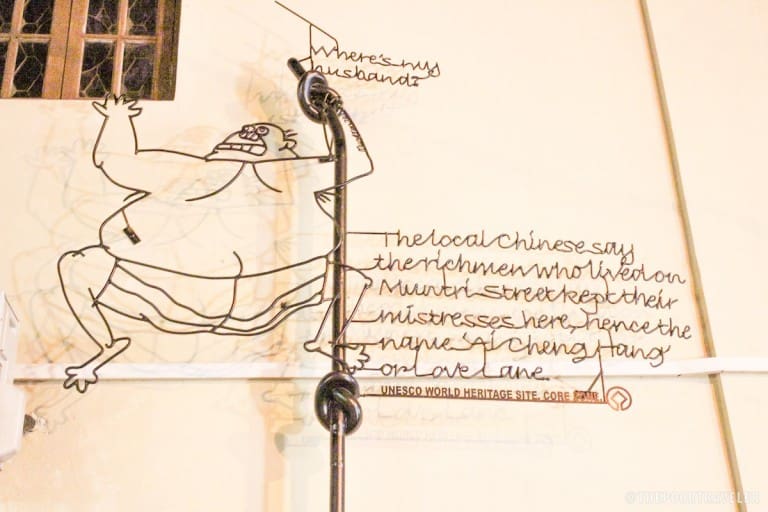 Where's my
husband?
The local Chinese say
the rich men who lived on
Muntri Street kept their
mistresses here, hence the
name 'Ai Cheng Hang'
or Love Lane.
UNESCO WORLD HERITAGE SITE, CORE ZONE
@THEPOORTRAVELER